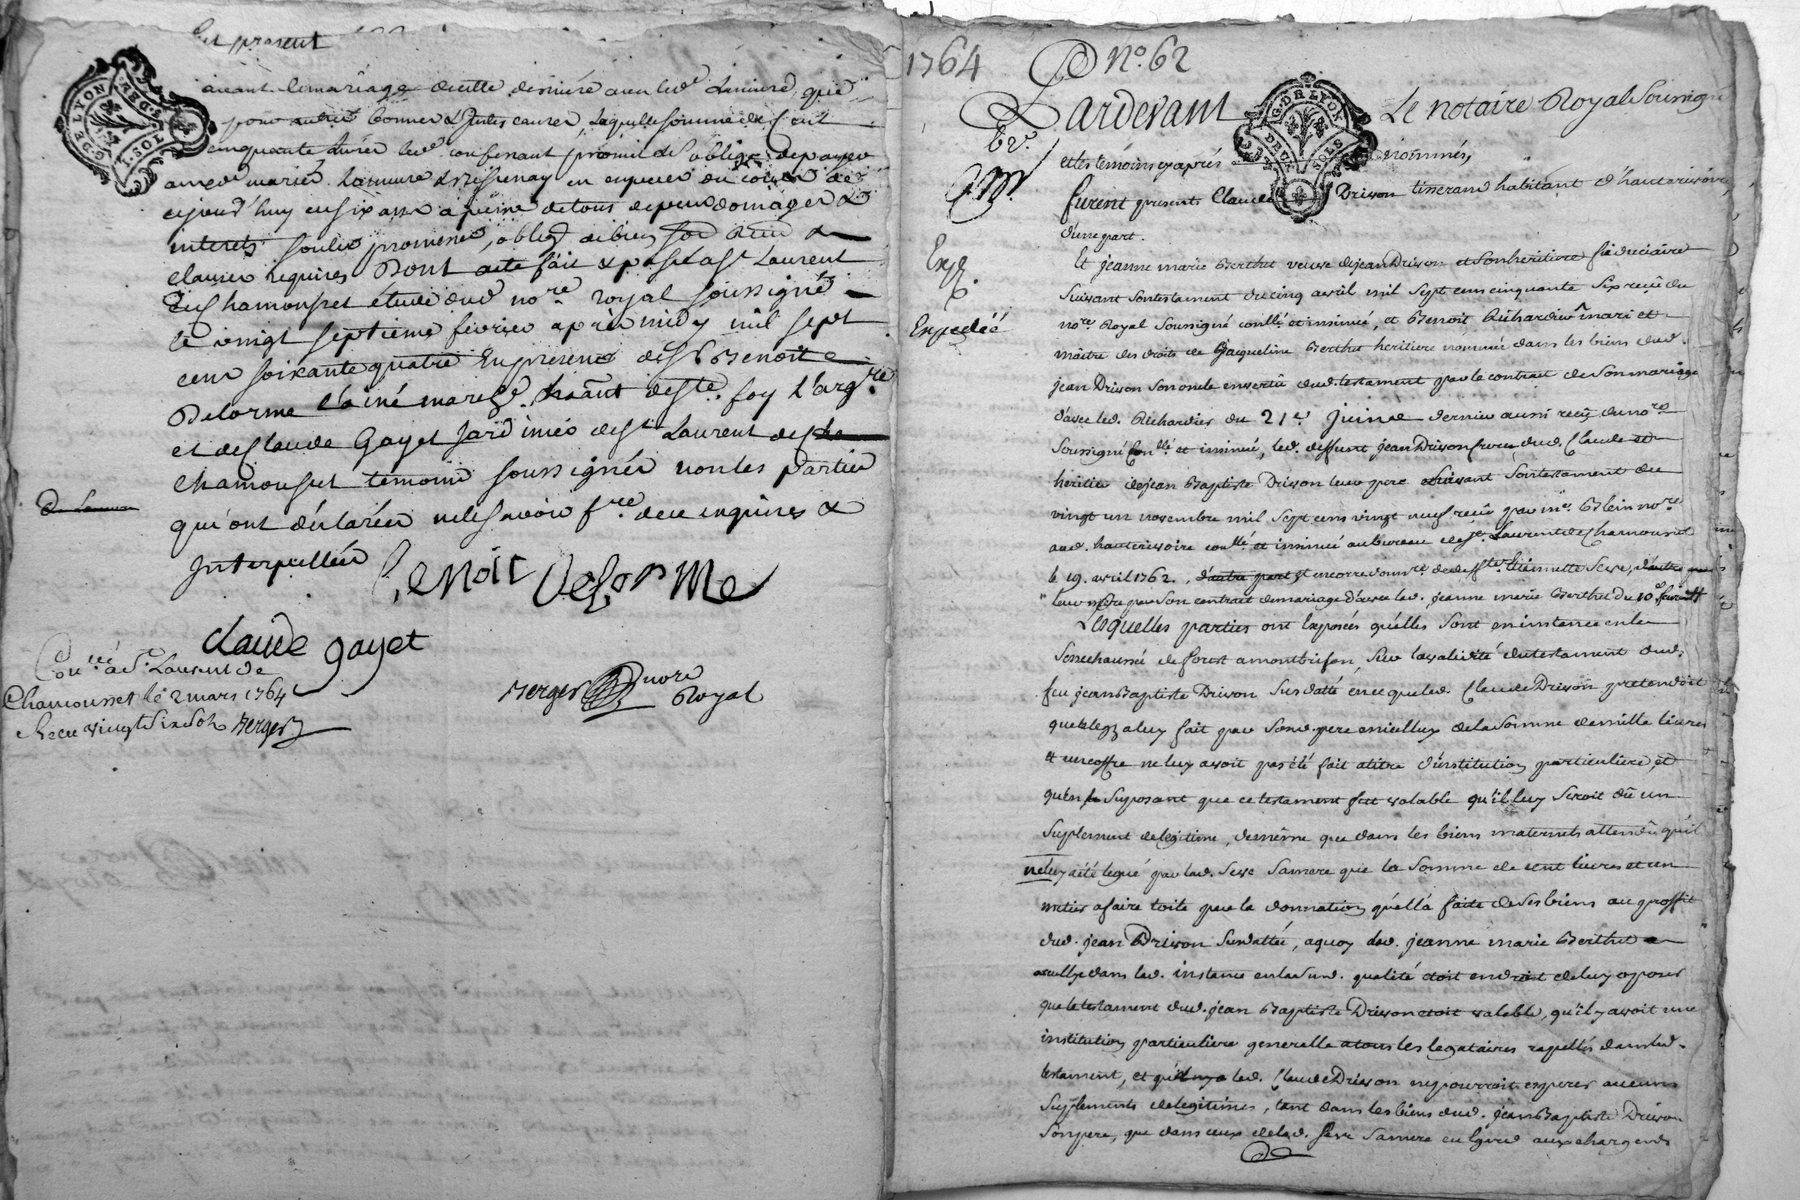 avant le mariage
pour autres bonnes & justes causes, laquelle somme de Cent
cinquante livres led. confessant promet & s'oblige de payer
aujourd'huy en six ans à peine de tous depens domages &
interets sous les promesses, oblig. de biens
clauses requises Dont acte fait & passé a St Laurent
de Chamousset étude dud no.re royal soussigné
le vingt septieme fevrier après midy mil sept
cent soixante quatre En presence de Sr Benoit
Delorme l'ainé march.d h.ant de Ste. foy l'arg.re
et de Claude Gayet jardinier de St Laurent de
chamousset temoins soussignés non les parties
qui ont déclarées ne le sçavoir f.re de ce enquises &
Interpellées
Benoit Delorme
Claude gayet
Con.llé à St. Laurent de
Chamousset le 2 mars 1764
Reçu vingt six sols Berger
Berger no.re
Royal
1764 N.o 62
Pardevant Le notaire Royal Soussigné
G. DE LYON
DEUX SOLS
et les témoins cy après nommés,
furent presents Claude Drivon tisserand habitant d'hauterivoire,
d'une part.
Expédiée
Et jeanne marie Berthet veuve de jean Drivon et son heritiere fiduciaire
Suivant son testament du cinq avril mil sept cens cinquante six reçu du
no.re Royal Soussigné con.llé et insinué, et Benoit Richardier mari et
maitre des droits de Jacqueline Berthet heritiere nommée dans les biens dud.
jean Drivon son oncle en vertu dud. testament par le contrat de son mariage
d'avec led. Richardier du 21.e Juin dernier aussi reçu du no.re
Soussigné Con.llé et insinué, led. deffunt jean Drivon frere dud. Claude et
heritier de jean Baptiste Drivon leur pere Suivant son testament du
vingt un novembre mil sept cens vingt neuf reçu par m.e Blein no.re
aud. hauterivoire con.llé et insinué au bureau de St Laurent de Chamousset
le 19. avril 1762.
leur mere par son contrat de mariage d'avec led. jeanne marie Berthet du 10.e
Lesquelles parties ont Exposées qu'elles sont en instance en la
Senechaussée de forest a montbrison, Sur la validité du testament dud.
feu jean Baptiste Drivon Susdatté en ce que led. Claude Drivon pretendoit
que le legs a luy fait par son d. pere en icelluy de la somme de mille livres
et un coffre ne luy avoit pas été fait a titre d'institution particuliere, et
qu'en suposant que ce testament fut valable qu'il luy seroit dû un
suplement de legitime, de même que dans les biens maternels attendû qu'il
ne luy a été legué par lad. Seve Sa mere que la somme de cent livres et un
métier a faire toile par la donnation qu'ell'a faite de ses biens au proffit
dud. jean Drivon Susdatté, a quoy lad. jeanne marie Berthet
dans lad. instance en lad. qualité étoit en droit de luy oposer
que le testament dud. jean Baptiste Drivon étoit valable, qu'il y avoit une
institution particuliere generalle a tous les legataires rapellés dans led.
testament, et qu'ainsy led. Claude Drivon ne pourroit esperer aucuns
suplements de legitimes, tant dans les biens dud. jean Baptiste Drivon
son pere, que dans ceux de lad. Seve Sa mere